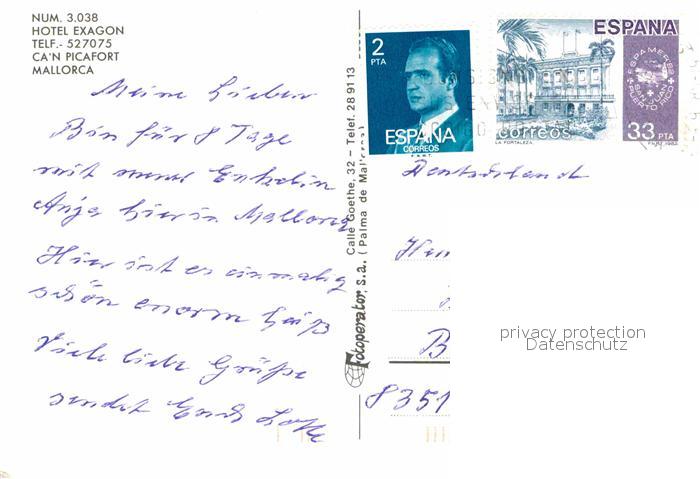 NUM. 3.038
HOTEL EXAGON
TELF.- 527075
CA'N PICAFORT
MALLORCA
Meine Lieben
Bin für 8 Tage
mit meiner Enkelin
Anja hier in Mallorca
Hier ist es einmalig
schön enorm heiß
Viele liebe Grüße
sendet Euch Lotte
Fotoperator, s.a.
Calle Goethe, 32 - Telef. 28 91 13
(Palma de Mallorca)
2
PTA
ESPAÑA
CORREOS
F.N.M.T.
ESPAÑA
ESPAMER 82
SAN JUAN
PUERTO RICO
correos
33 PTA
LA FORTALEZA
F.N.M.T. 1982
Deutschland
B
8351
privacy protection
Datenschutz